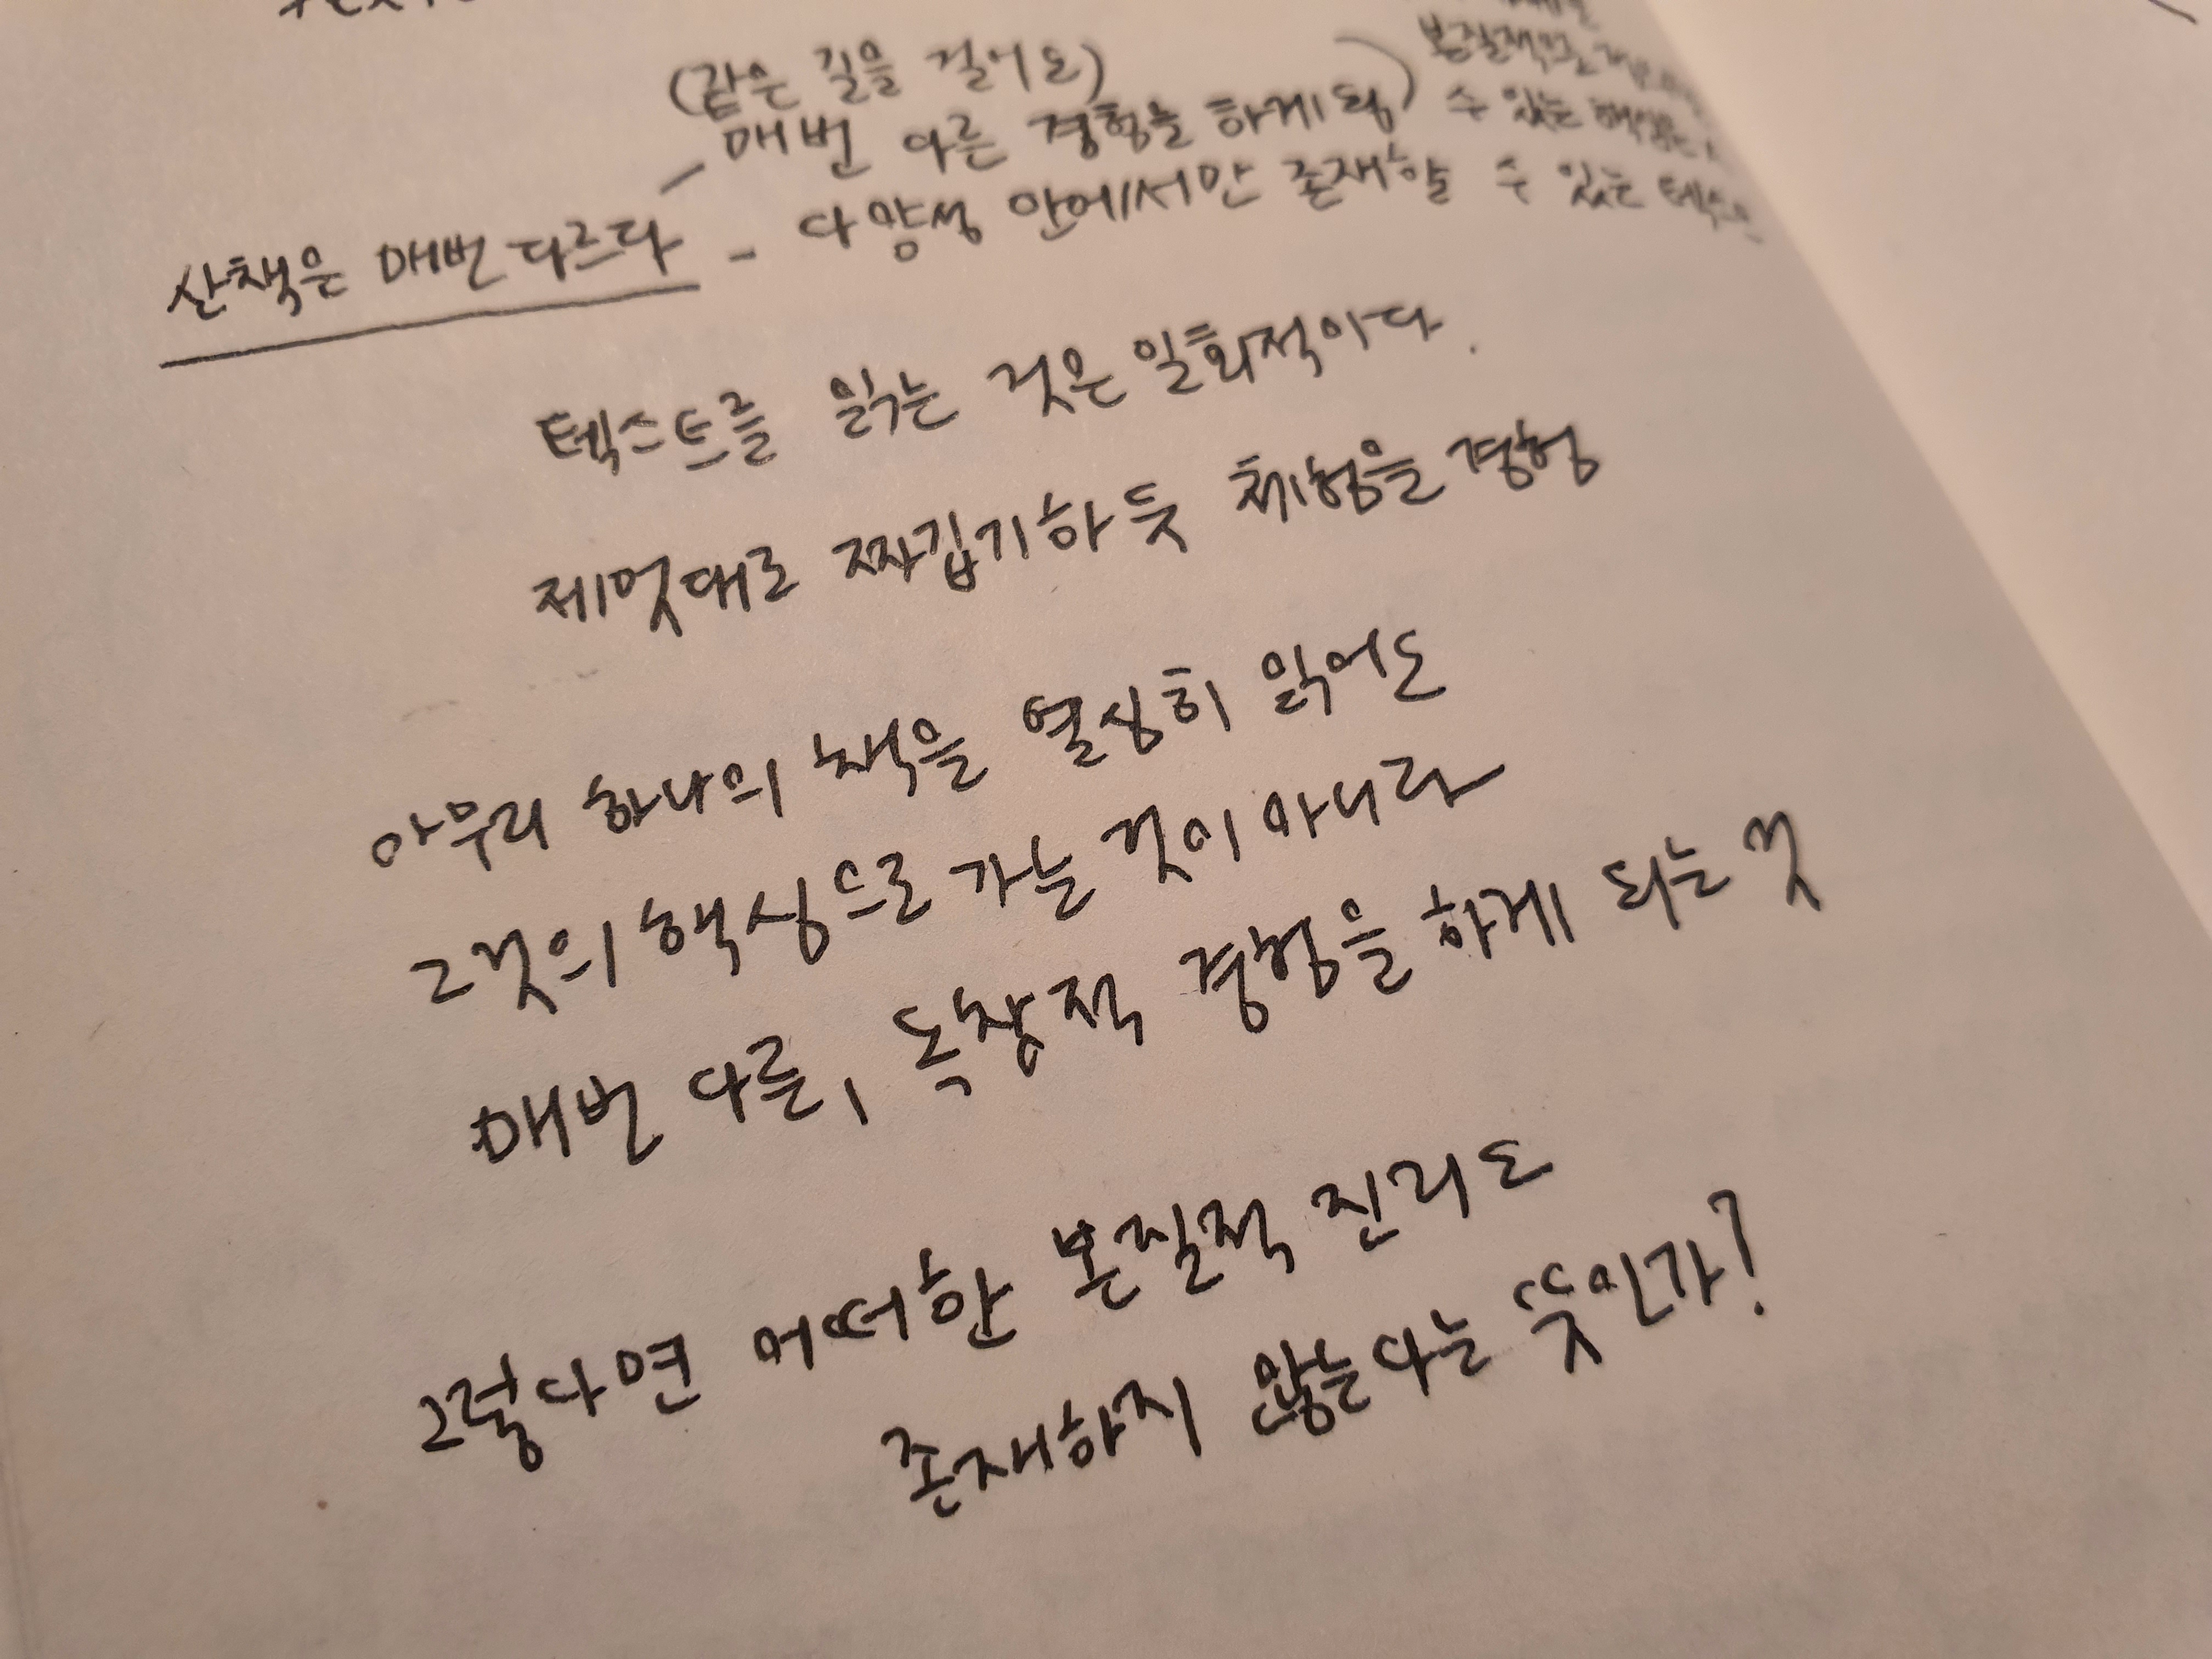 (같은 길을 걸어도)
매번 다른 경험을 하게 됨)
본질적으로
수 있는 핵심은
산책은 매번 다르다 - 다양성 안에서만 존재할 수 있는 텍스트
텍스트를 읽는 것은 일회적이다.
제멋대로 짜깁기하듯 체험을 경험
아무리 하나의 책을 열심히 읽어도
그것의 핵심으로 가는 것이 아니라
매번 다른, 독창적 경험을 하게 되는 것
그렇다면 어떠한 본질적 진리도
존재하지 않는다는 뜻인가?